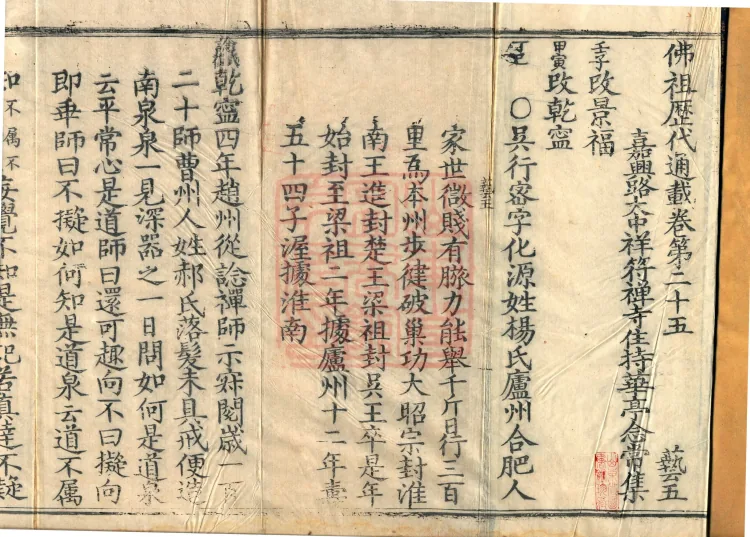 佛祖歷代通載卷第二十五 藝五
嘉興路大中祥符禪寺住持華亭念常集
壬子改景福
甲寅改乾寧
〇吳行密字化源姓楊氏廬州合肥人
藝五
家世微賤有膂力能舉千斤日行三百
里爲本州步徤破巢功大昭宗封淮
南王造封楚王梁祖封吳王卒是年
始封至梁祖二年據廬州十二年壽
五十四子渥據淮南
乾寧四年趙州從諗禪師示寂閱歲一百
二十師曹州人姓郝氏落髮未具戒便造
南泉泉一見深器之一日問如何是道泉
云平常心是道師曰還可趣向不曰擬向
即乖師曰不擬如何知是道泉云道不属
知不属不妄覺不知是無記若真達不疑